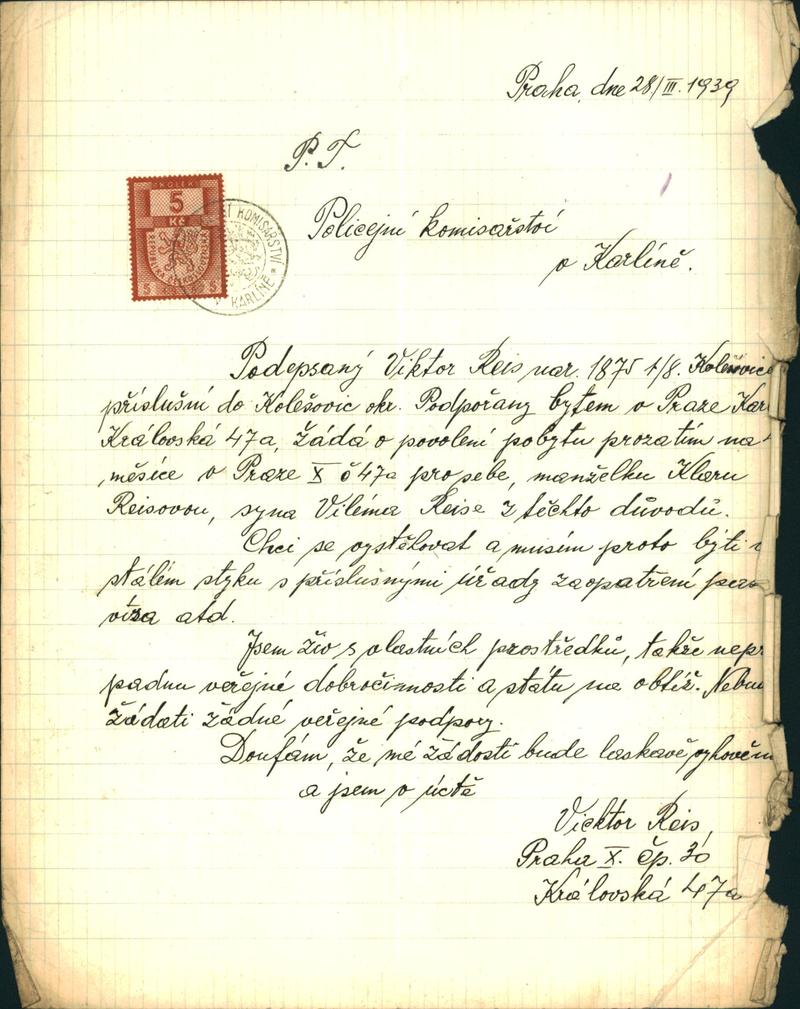 Praha, dne 28/III. 1939
P. T.
KOLEK
5
Kč
KOMISAŘSTVÍ
KARLÍNĚ
Policejní komisařství
v Karlíně.
Podepsaný Viktor Reis nar. 1875 1/8. Kolešovice
příslušní do Kolešovic okr. Podpořany bytem v Praze Kar
Královská 47a, žádá o povolení pobytu prozatím na
měsíce v Praze X č 47a pro sebe, manželku Klaru
Reisovou, syna Viléma Reise z těchto důvodů.
Chci se vystěhovat a musím proto býti v
stálém styku s příslušnými úřady zaopatření pas
visa atd.
Jsem živ s vlastních prostředků, takže nepr
padnu veřejné dobročinnosti a státu na obtíž. Nebu
žádati žádné veřejné podpory.
Doufám, že mé žádosti bude laskavě vyhověn
a jsem v úctě
Vicktor Reis,
Praha X. čp. 30
Královská 47a